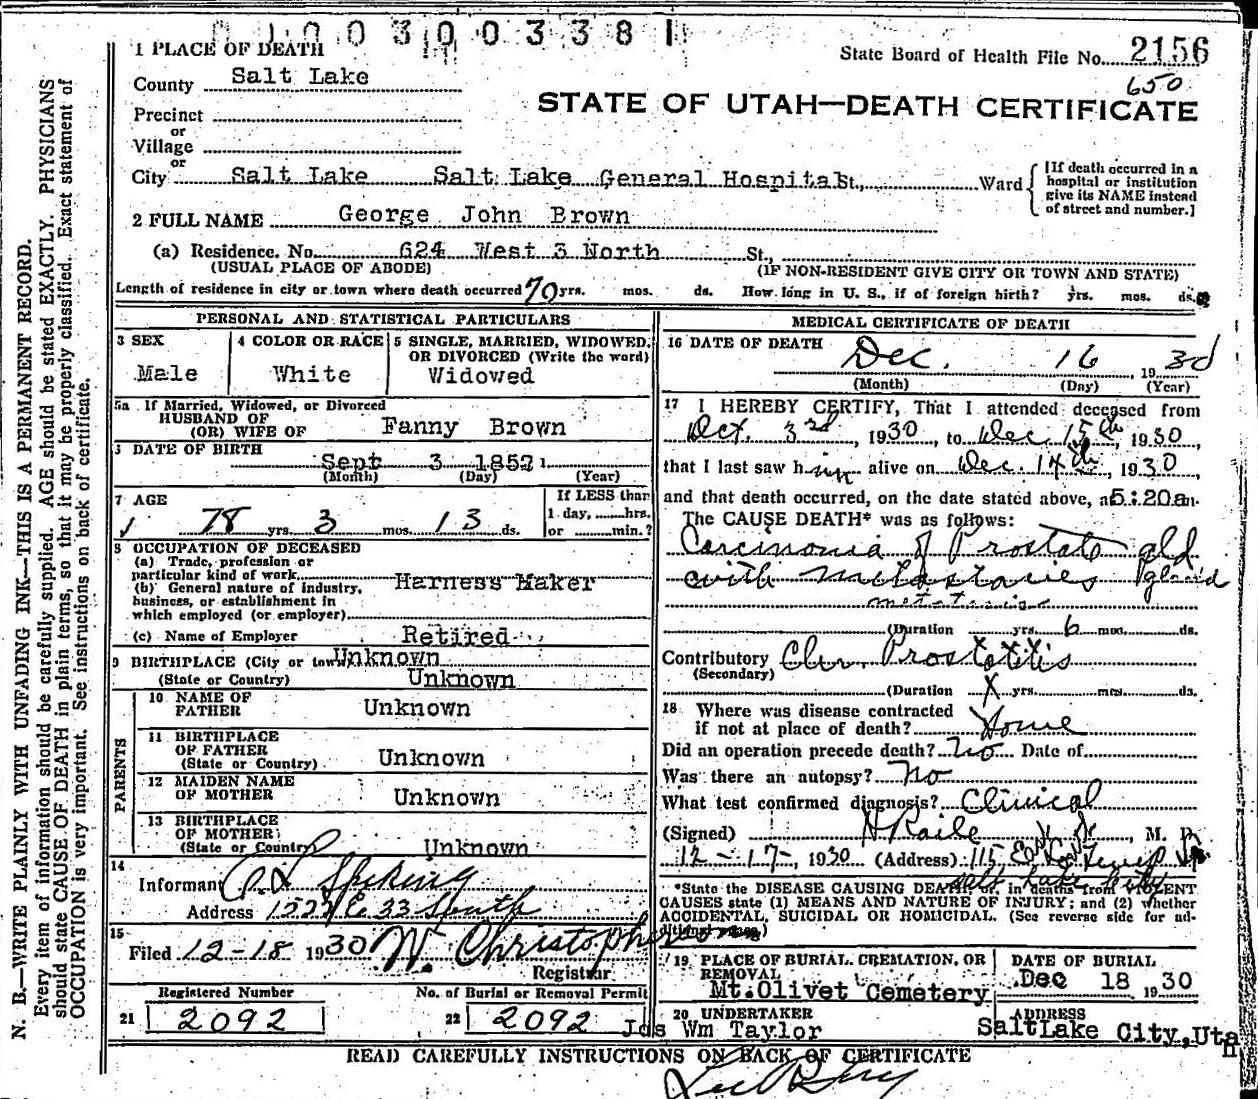 0 1 0 0 3 0 0 3 3 8 1
State Board of Health File No. 2156
650
STATE OF UTAH—DEATH CERTIFICATE
1 PLACE OF DEATH
County Salt Lake
Precinct
or
Village
or
City Salt Lake Salt Lake General Hospital St., Ward
[If death occurred in a
hospital or institution
give its NAME instead
of street and number.]
2 FULL NAME George John Brown
(a) Residence. No. 624 West 3 North St.,
(USUAL PLACE OF ABODE) (IF NON-RESIDENT GIVE CITY OR TOWN AND STATE)
Length of residence in city or town where death occurred 70 yrs. mos. ds. How long in U. S., if of foreign birth? yrs. mos. ds.
PERSONAL AND STATISTICAL PARTICULARS
3 SEX
Male
4 COLOR OR RACE
White
5 SINGLE, MARRIED, WIDOWED,
OR DIVORCED (Write the word)
Widowed
5a If Married, Widowed, or Divorced
HUSBAND OF
(OR) WIFE OF Fanny Brown
DATE OF BIRTH
Sept 3 1852
(Month) (Day) (Year)
7 AGE
78 yrs. 3 mos. 13 ds.
If LESS than
1 day, hrs.
or min.?
8 OCCUPATION OF DECEASED
(a) Trade, profession or
particular kind of work Harness Maker
(b) General nature of industry,
business, or establishment in
which employed (or employer)
(c) Name of Employer Retired
9 BIRTHPLACE (City or town) Unknown
(State or Country) Unknown
PARENTS
10 NAME OF
FATHER Unknown
11 BIRTHPLACE
OF FATHER
(State or Country) Unknown
12 MAIDEN NAME
OF MOTHER Unknown
13 BIRTHPLACE
OF MOTHER
(State or Country) Unknown
14
Informant
Address E 33 South
15
Filed 12-18 1930 W. Christopherson
Registrar
Registered Number
21 2092
No. of Burial or Removal Permit
22 2092
MEDICAL CERTIFICATE OF DEATH
16 DATE OF DEATH Dec. 16 1930
(Month) (Day) (Year)
17 I HEREBY CERTIFY, That I attended deceased from
Oct. 3rd, 1930, to Dec 15th, 1930,
that I last saw him alive on Dec. 14th, 1930,
and that death occurred, on the date stated above, at 5:20am.
The CAUSE DEATH* was as follows:
Carcinonia of Prostate gld
with metastasies gland
(Duration yrs. 6 mos. ds.
Contributory Chr. Prostatitis
(Secondary)
(Duration X yrs. mos. ds.
18 Where was disease contracted
if not at place of death? Home
Did an operation precede death? no Date of
Was there an autopsy? no
What test confirmed diagnosis? Clinical
(Signed) H Raile, M. D.
12-17-, 1930 (Address) 115 East So Temp St
Salt Lake City
*State the DISEASE CAUSING DEATH, or, in deaths from VIOLENT
CAUSES state (1) MEANS AND NATURE OF INJURY; and (2) whether
ACCIDENTAL, SUICIDAL OR HOMICIDAL. (See reverse side for ad-
ditional space.)
19 PLACE OF BURIAL, CREMATION, OR
REMOVAL
Mt. Olivet Cemetery
DATE OF BURIAL
Dec 18 1930
20 UNDERTAKER
Jos Wm Taylor
ADDRESS
Salt Lake City, Utah
READ CAREFULLY INSTRUCTIONS ON BACK OF CERTIFICATE
N. B.—WRITE PLAINLY WITH UNFADING INK—THIS IS A PERMANENT RECORD.
Every item of information should be carefully supplied. AGE should be stated EXACTLY. PHYSICIANS
should state CAUSE OF DEATH in plain terms, so that it may be properly classified. Exact statement of
OCCUPATION is very important. See instructions on back of certificate.